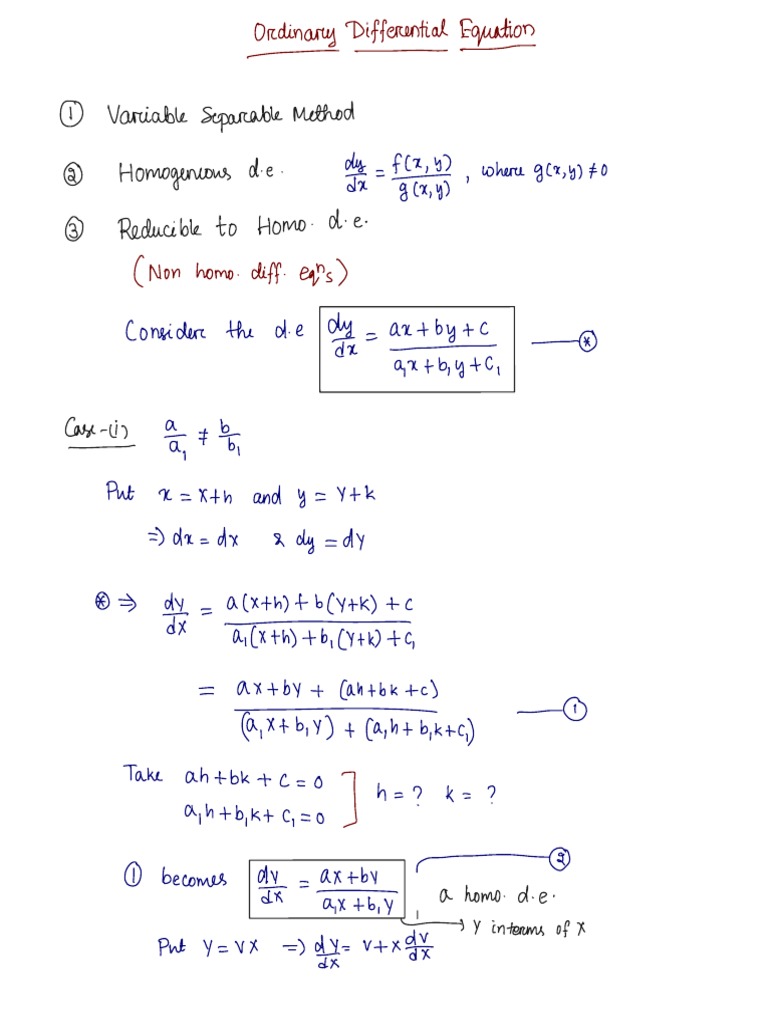 Ordinary Differential Equation
① Variable Separable Method
② Homogenious d.e. dy/dx = f(x,y)/g(x,y), where g(x,y) ≠ 0
③ Reducible to Homo. d.e.
(Non homo. diff. eqⁿs)
Consider the d.e dy/dx = (ax+by+c)/(a₁x+b₁y+c₁) —⊛
Case-(i) a/a₁ ≠ b/b₁
Put x = X+h and y = Y+k
⇒ dx = dX & dy = dY
⊛ ⇒ dY/dX = (a(X+h)+b(Y+k)+c)/(a₁(X+h)+b₁(Y+k)+c₁)
= (aX+bY+(ah+bk+c))/((a₁X+b₁Y)+(a₁h+b₁k+c₁)) —①
Take ah+bk+c=0
a₁h+b₁k+c₁=0 ] h=? k=?
① becomes dY/dX = (aX+bY)/(a₁X+b₁Y) —②
a homo. d.e.
→ Y interms of X
Put Y = VX ⇒ dY/dX = V+X dV/dX